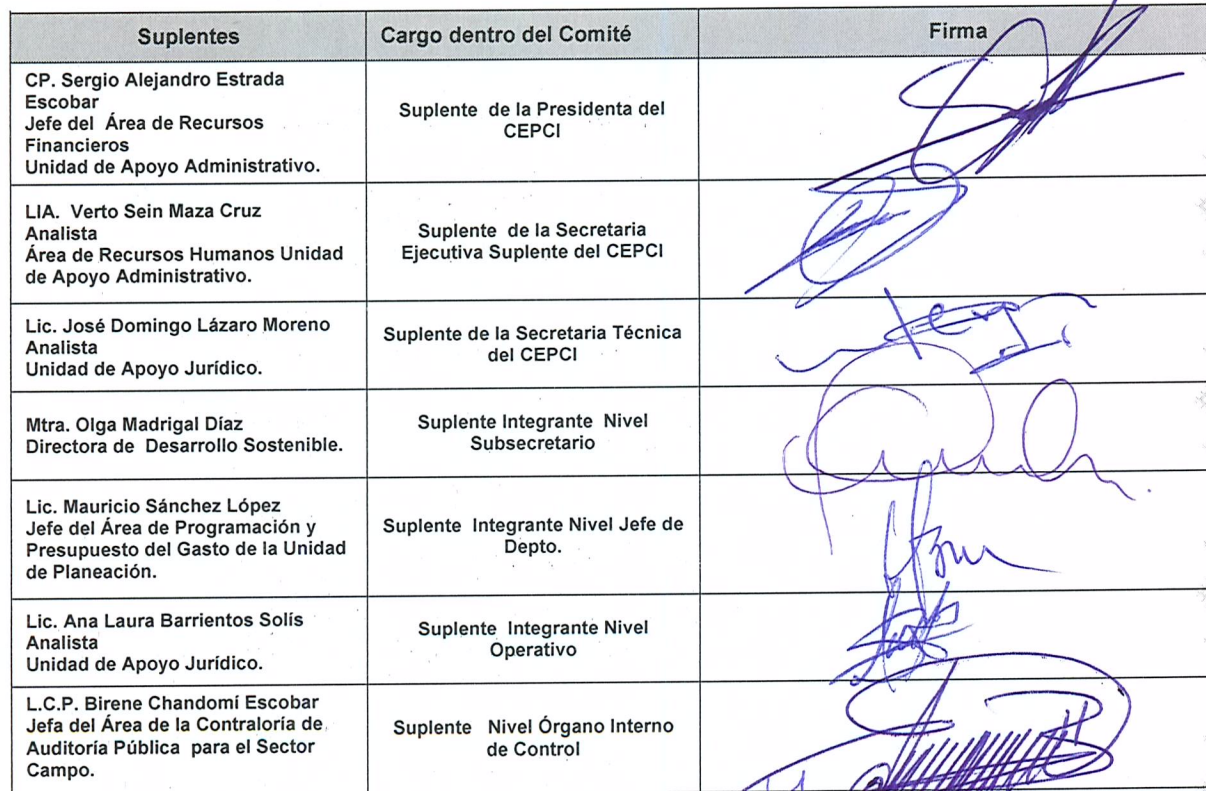 Suplentes
Cargo dentro del Comité
Firma
CP. Sergio Alejandro Estrada
Escobar
Jefe del Área de Recursos
Financieros
Unidad de Apoyo Administrativo.
Suplente de la Presidenta del
CEPCI
LIA. Verto Sein Maza Cruz
Analista
Área de Recursos Humanos Unidad
de Apoyo Administrativo.
Suplente de la Secretaria
Ejecutiva Suplente del CEPCI
Lic. José Domingo Lázaro Moreno
Analista
Unidad de Apoyo Jurídico.
Suplente de la Secretaria Técnica
del CEPCI
Mtra. Olga Madrigal Díaz
Directora de Desarrollo Sostenible.
Suplente Integrante Nivel
Subsecretario
Lic. Mauricio Sánchez López
Jefe del Área de Programación y
Presupuesto del Gasto de la Unidad
de Planeación.
Suplente Integrante Nivel Jefe de
Depto.
Lic. Ana Laura Barrientos Solís
Analista
Unidad de Apoyo Jurídico.
Suplente Integrante Nivel
Operativo
L.C.P. Birene Chandomí Escobar
Jefa del Área de la Contraloría de
Auditoría Pública para el Sector
Campo.
Suplente Nivel Órgano Interno
de Control